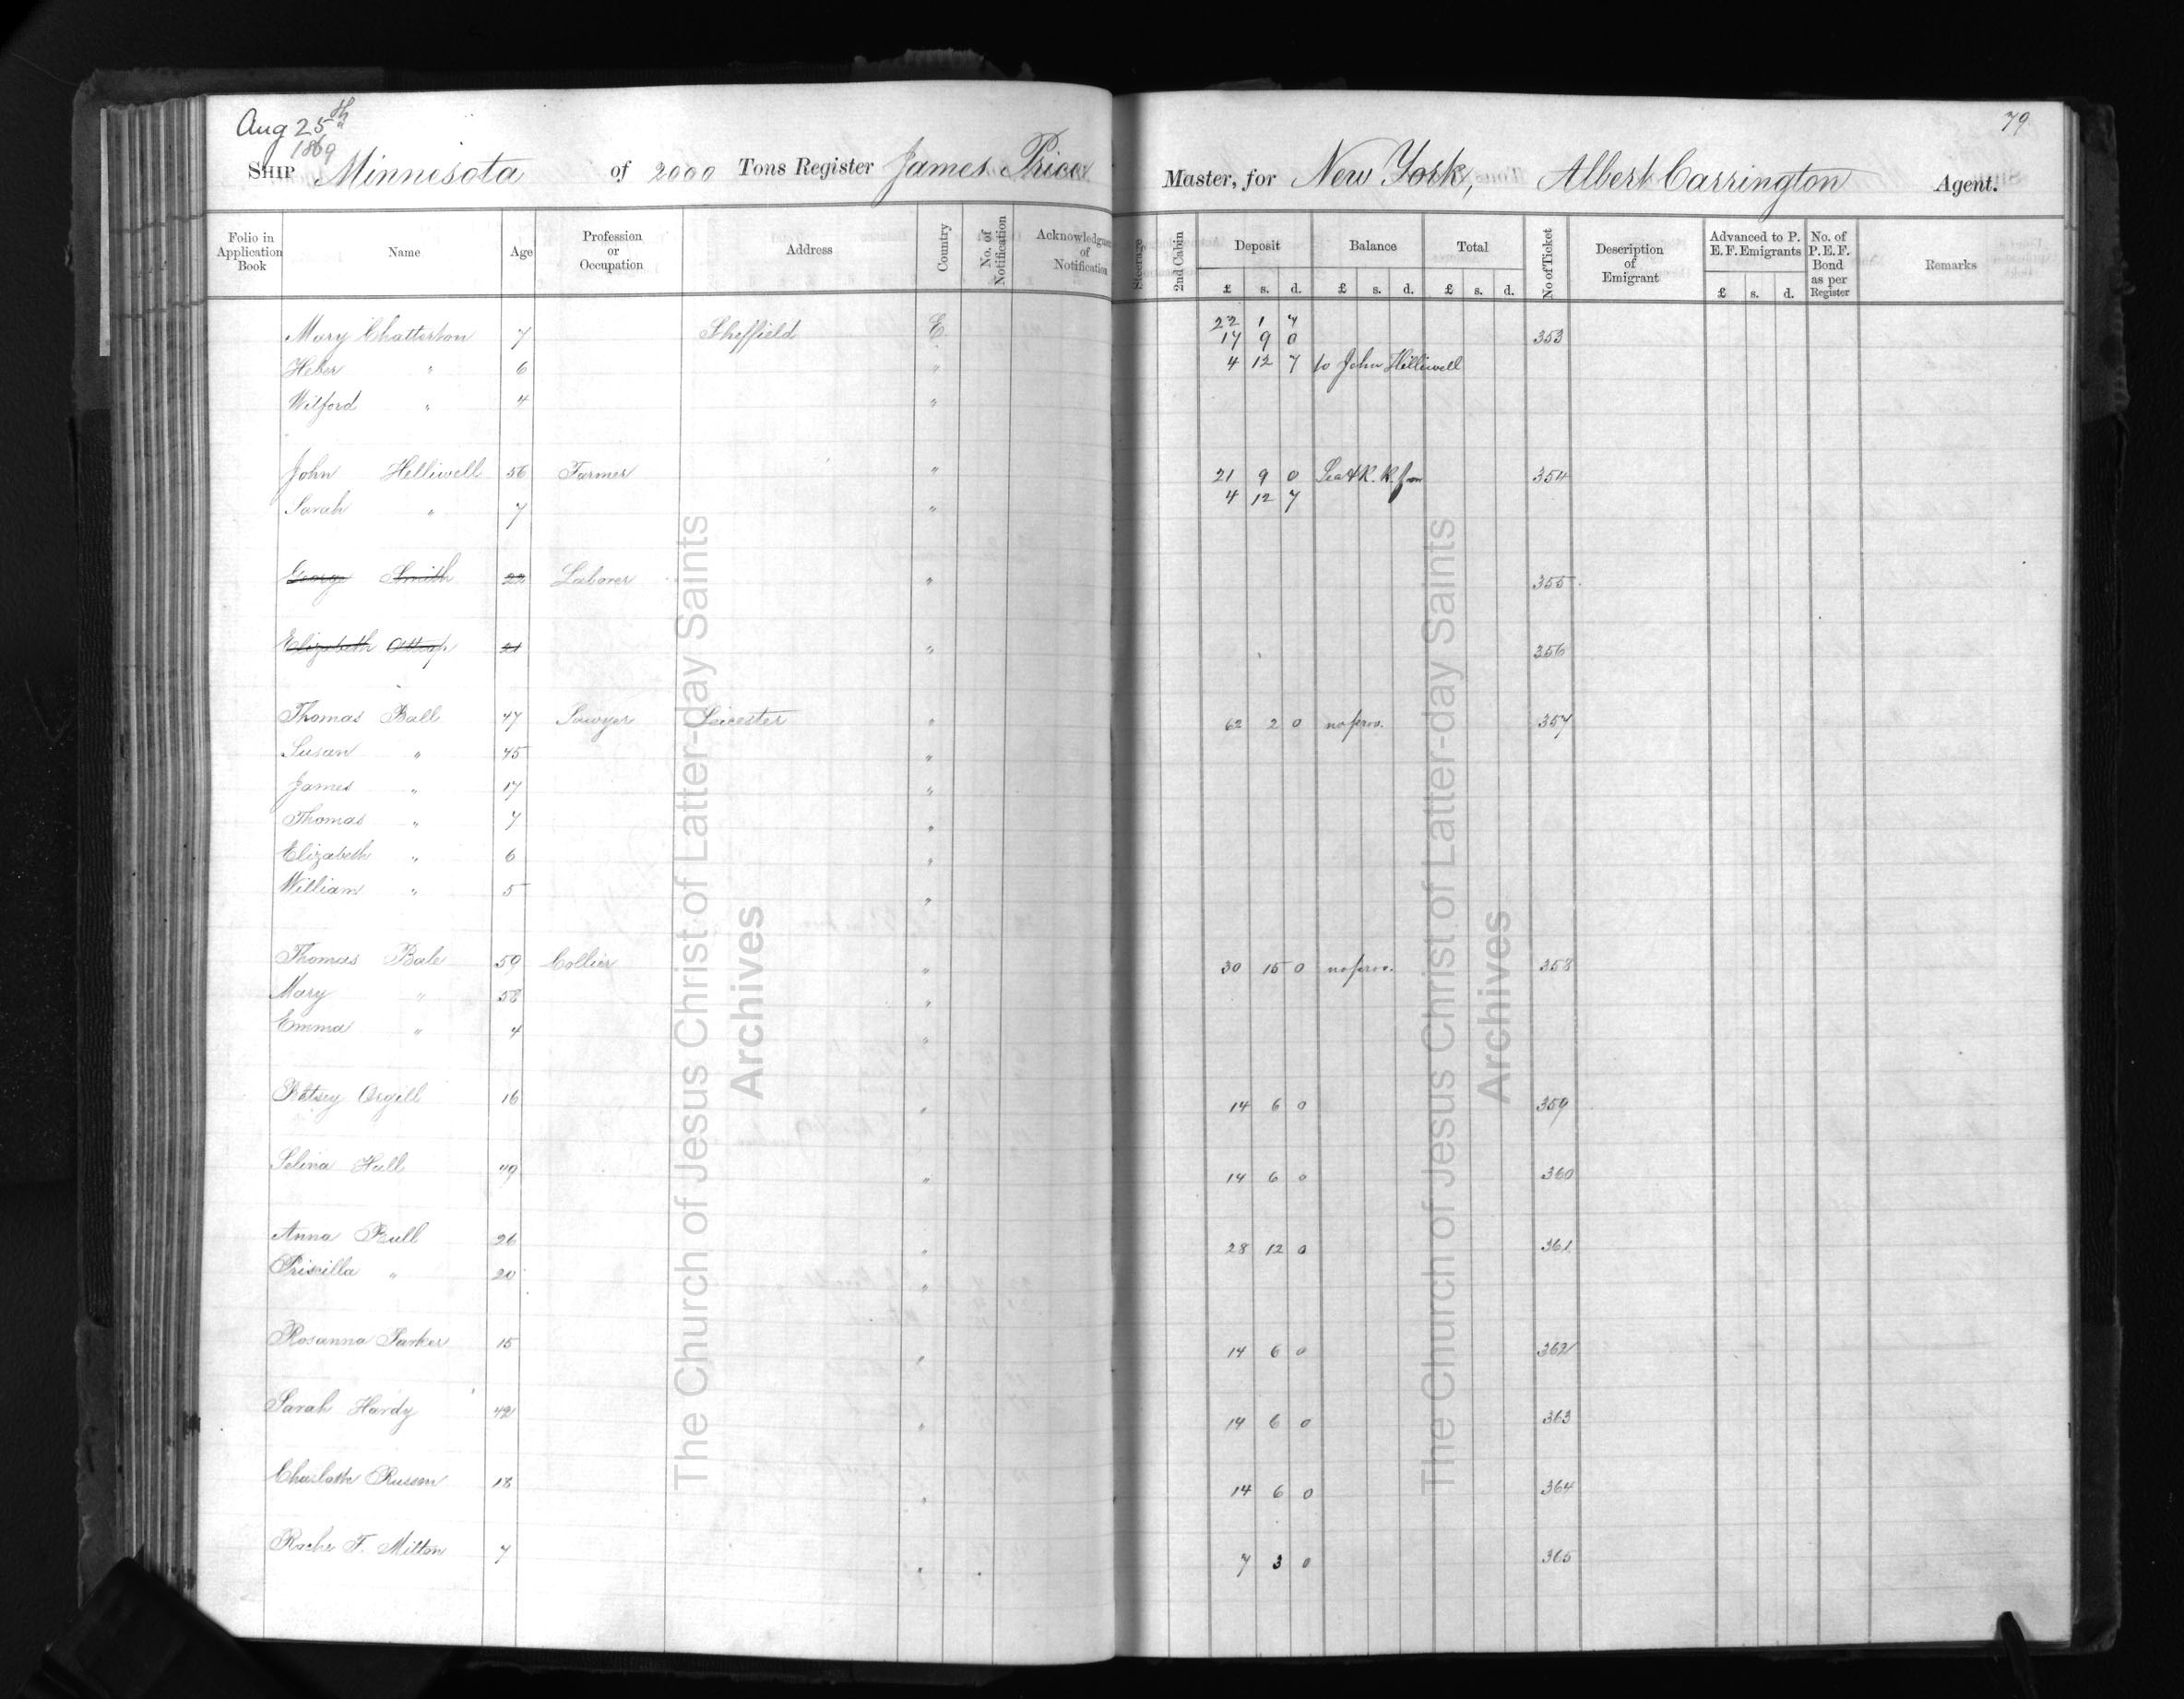 Aug 25th
1869
79
SHIP Minnisota of 2000 Tons Register James Price Master, for New York, Albert Carrington Agent.
Folio in Application Book Name Age Profession or Occupation Address Country No. of Notification Acknowledgment of Notification Steerage 2nd Cabin Deposit £ s. d. Balance £ s. d. Total £ s. d. No of Ticket Description of Emigrant Advanced to P. E. F. Emigrants £ s. d. No. of P.E.F. Bond as per Register Remarks
22 1 7
Mary Chatterton 7 Sheffield E 17 9 0 353
Heber " 6 " 4 12 7 to John Helliwell
Wilford " 4 "
John Helliwell 56 Farmer " 21 9 0 Sea & R. R. from 354
Sarah " 7 " 4 12 7
George Smith 22 Laborer " 355
Elizabeth 21 " 356
Thomas Ball 47 Sawyer Leicester " 62 2 0 no prov. 357
Susan " 45 "
James " 17 "
Thomas " 7 "
Elizabeth " 6 "
William " 5 "
Thomas Bale 59 Collier " 30 15 0 no prov. 358
Mary " 58 "
Emma " 4 "
Betsey Orgill 16 " 14 6 0 359
Selina Hall " 14 6 0 360
Anna Bull 26 " 28 12 0 361
Priscilla " 20 "
Rosanna Parker 15 " 14 6 0 362
Sarah Hardy 42 " 14 6 0 363
Charlotte Russon 18 " 14 6 0 364
F. Milton 7 " 7 3 0 365
The Church of Jesus Christ of Latter-day Saints
Archives
The Church of Jesus Christ of Latter-day Saints
Archives